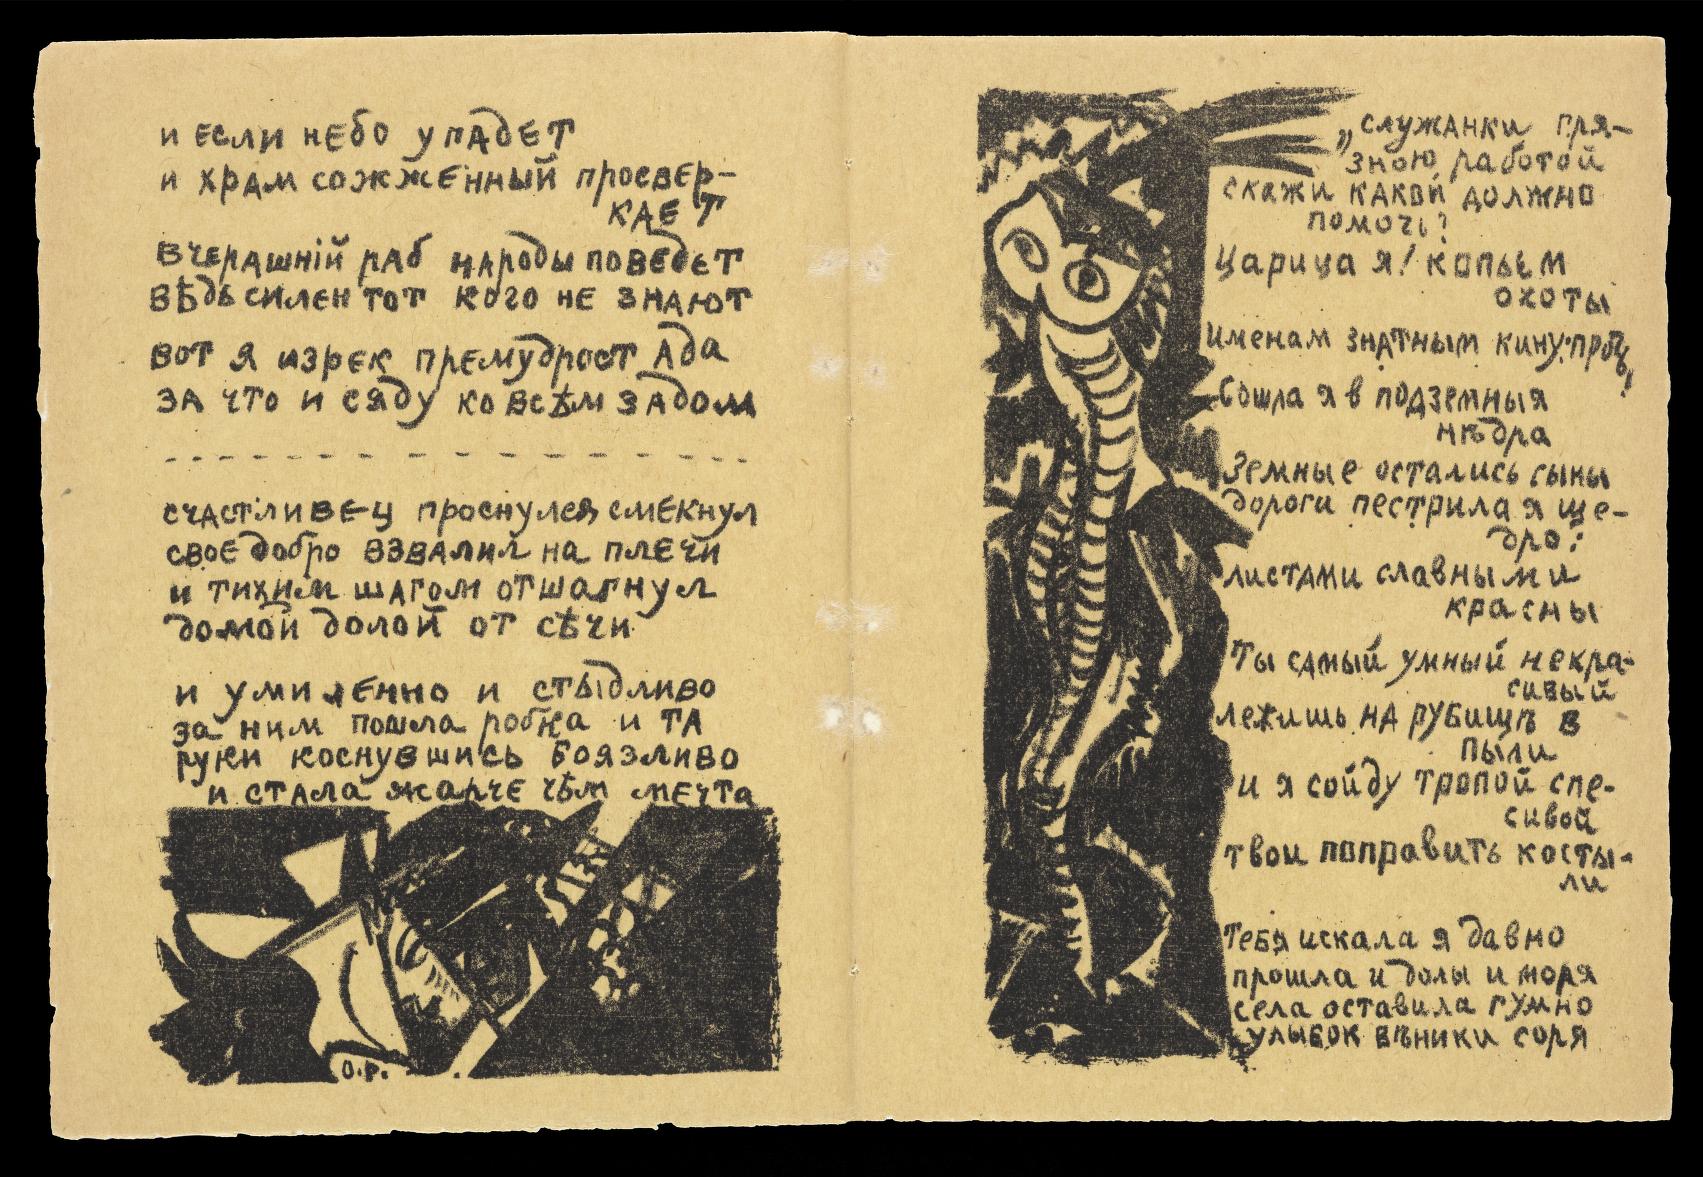 и если небо упадет
и храм сожженный просвер-
кает
вчерашній раб народы поведет
вѣдь силен тот кого не знают
вот я изрек премудрост Ада
за что и сяду ко всѣм задом
- - - - - - - - - - - - - - - -
счастливец проснулся смекнул
свое добро взвалил на плечи
и тихим шагом отшагнул
домой долой от сѣчи
и умиленно и стыдливо
за ним пошла робка и та
руки коснувшись боязливо
и стала жарче чѣм мечта
О.Р.
„служанки гря-
зною работой
скажи какой должно
помочь?
Царица я! копьем
охоты
Именам знатным кину:
Сошла я в подземныя
нѣдра
Земные остались сыны
дороги пестрила я ще-
дро:
листами славными
красны
Ты самый умный некра-
сивый
лежишь на рубищѣ в
пыли
и я сойду тропой спе-
сивой
твои поправить косты-
ли
Тебя искала я давно
прошла и долы и моря
села оставила гумно
улыбок вѣники соря